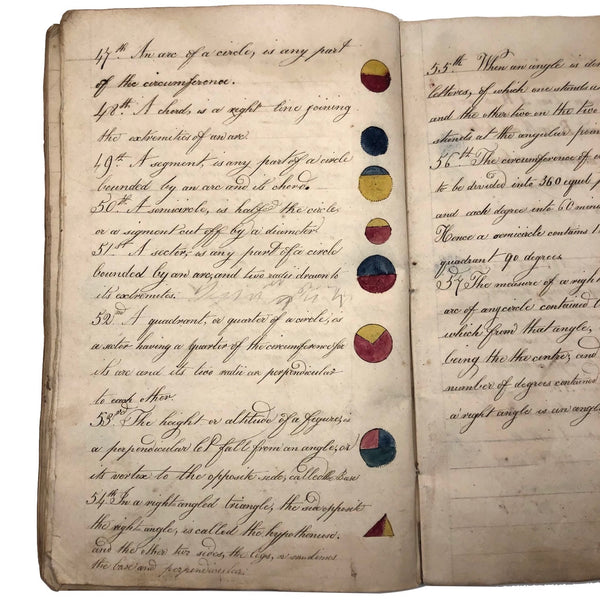 47th An arc of a circle, is any part
of the circumference.
48th. A chord, is a right line joining
the extremities of an arc.
49th. A segment, is any part of a circle
bounded by an arc and its chord.
50th. A semicircle, is half the circle,
or a segment cut off by a diameter
51st A sector, is any part of a circle
bounded by an arc, and two radii drawn to
its extremities.
52nd. A quadrant, or quarter of a circle, is
a sector having a quarter of the circumference for
its arc and its two radii are perpendicular
to each other.
53rd The height or altitude of a figure, is
a perpendicular let fall from an angle, or
its vertex to the opposite side, called the Base
54th In a right angled triangle, the side opposit
the right angle, is called the hypothenuse.
and the other two sides, the legs, or sometimes
the base and perpendicular
55th When an angle is
letters, of which one stands a
and the other two on the two
stands at the angular poin
56th The circumference of
to be divided into 360 equal p
and each degree into 60 min
Hence a semicircle contains 1
quadrant 90 degrees
57 The measure of a right
arc of any circle contained
which from that angle,
being the the centre, and
number of degrees contained
a right angle is an ang